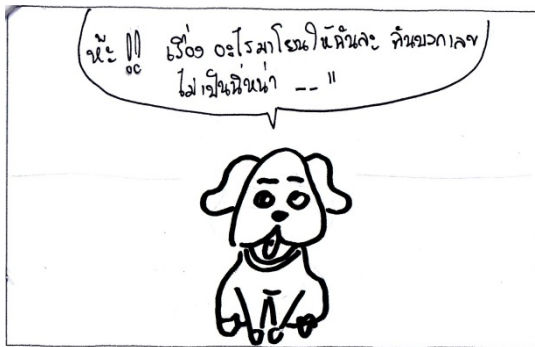 ห๊ะ !! เรื่อง อะไรมาโยนให้ฉันละ ฉันบวกเลข
ไม่เป็นนี่หน่า --"